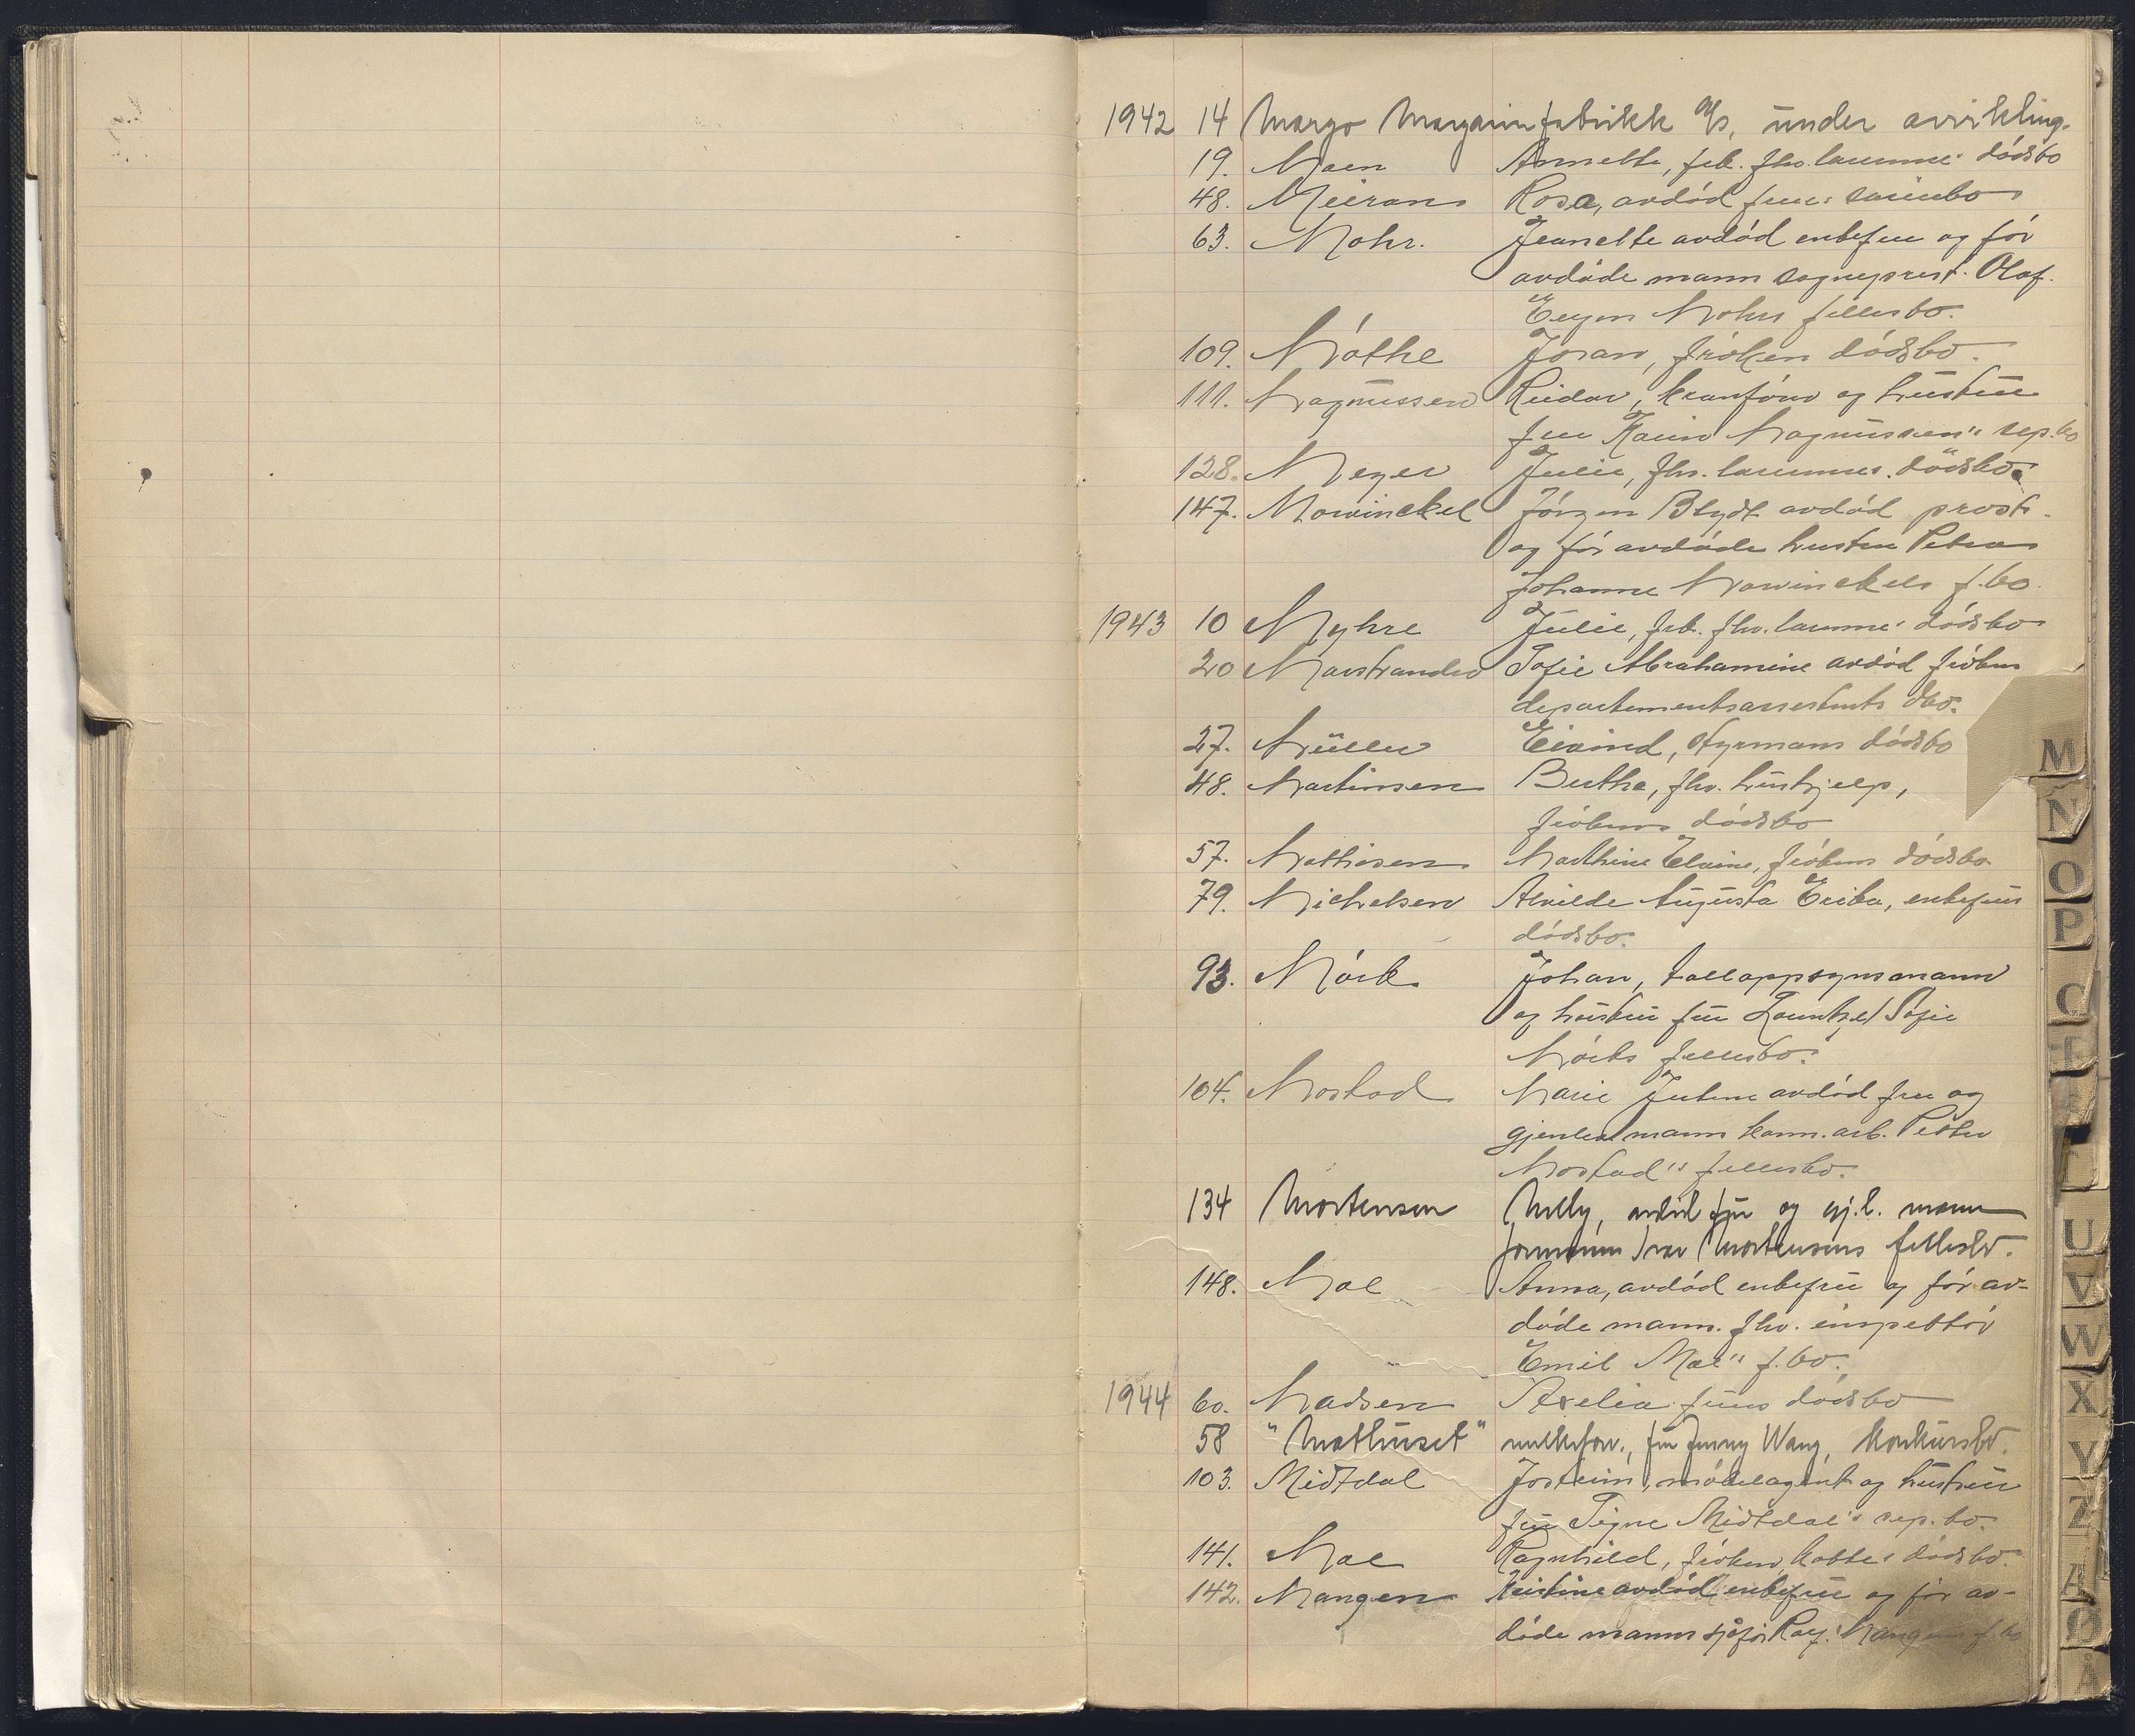 1942 14 Margo Margarinfabrikk A/S, under avvikling.
19. Moen Annette, frk. fhv. lærerinnes dødsbo
48. Meirans Rosa, avdød frues særbo
63. Mohr. Jeanette avdød enkefru og før
avdøde mann sogneprest Olaf
Mohrs fellesbo.
109. Møthe Joran, frøken dødsbo.
111. Magnussen Reidar, kranfører og hustru
fru Karin Magnussen's sep.bo
128. Meyer Julie, fhv. lærerinnes dødsbo.
147. Mowinckel Jørgen Blydt avdød prost
og før avdøde hustru Petra
Johanne Mowinckels f.bo.
1943 10 Myhre Julie, frk. fhv. lærerinnes dødsbo
20 Marstrander Sofie Abrahamine avdød frøken
departementsassistents dbo.
27. Müller Eivind, styrmanns dødsbo
48. Martinsen Berthe, fhv. hushjelp,
frøkens dødsbo
57. Mathisen Mathine Elvine, frøkens dødsbo
79. Michelsen Alvilde Augusta Erika, enkefrus
dødsbo.
93. Mørk Johan, tolloppsynsmann
og hustru fru Sofie
Mørks fellesbo.
104. Mostad Marie avdød fru og
gjenlev. mann komm. arb. Petter
Mostad's fellesbo.
134 Mortensen Nelly, avdød fru og gj.l. mann
formann Ivar Mortensens fellesbo.
148. Moe Anna, avdød enkefru og før av-
døde mann fhv. inspektør
Emil Moe's f.bo.
1944 60. Madsen Axelia frues dødsbo
58 "Mathuset" melkeforr., fru Jenny Wang, konkursbo.
103. Midtdal Jostein, møbelagent og hustru
fru Signe Midtdal's sep.bo.
141. Moe Ragnhild, frøken dødsbo.
142. Mangen Kristine avdød enkefru og før av-
døde mann sjåfør Mangens f.bo
M
N
O
P
U
V
W
X
Y
Z
Æ
Ø
Å